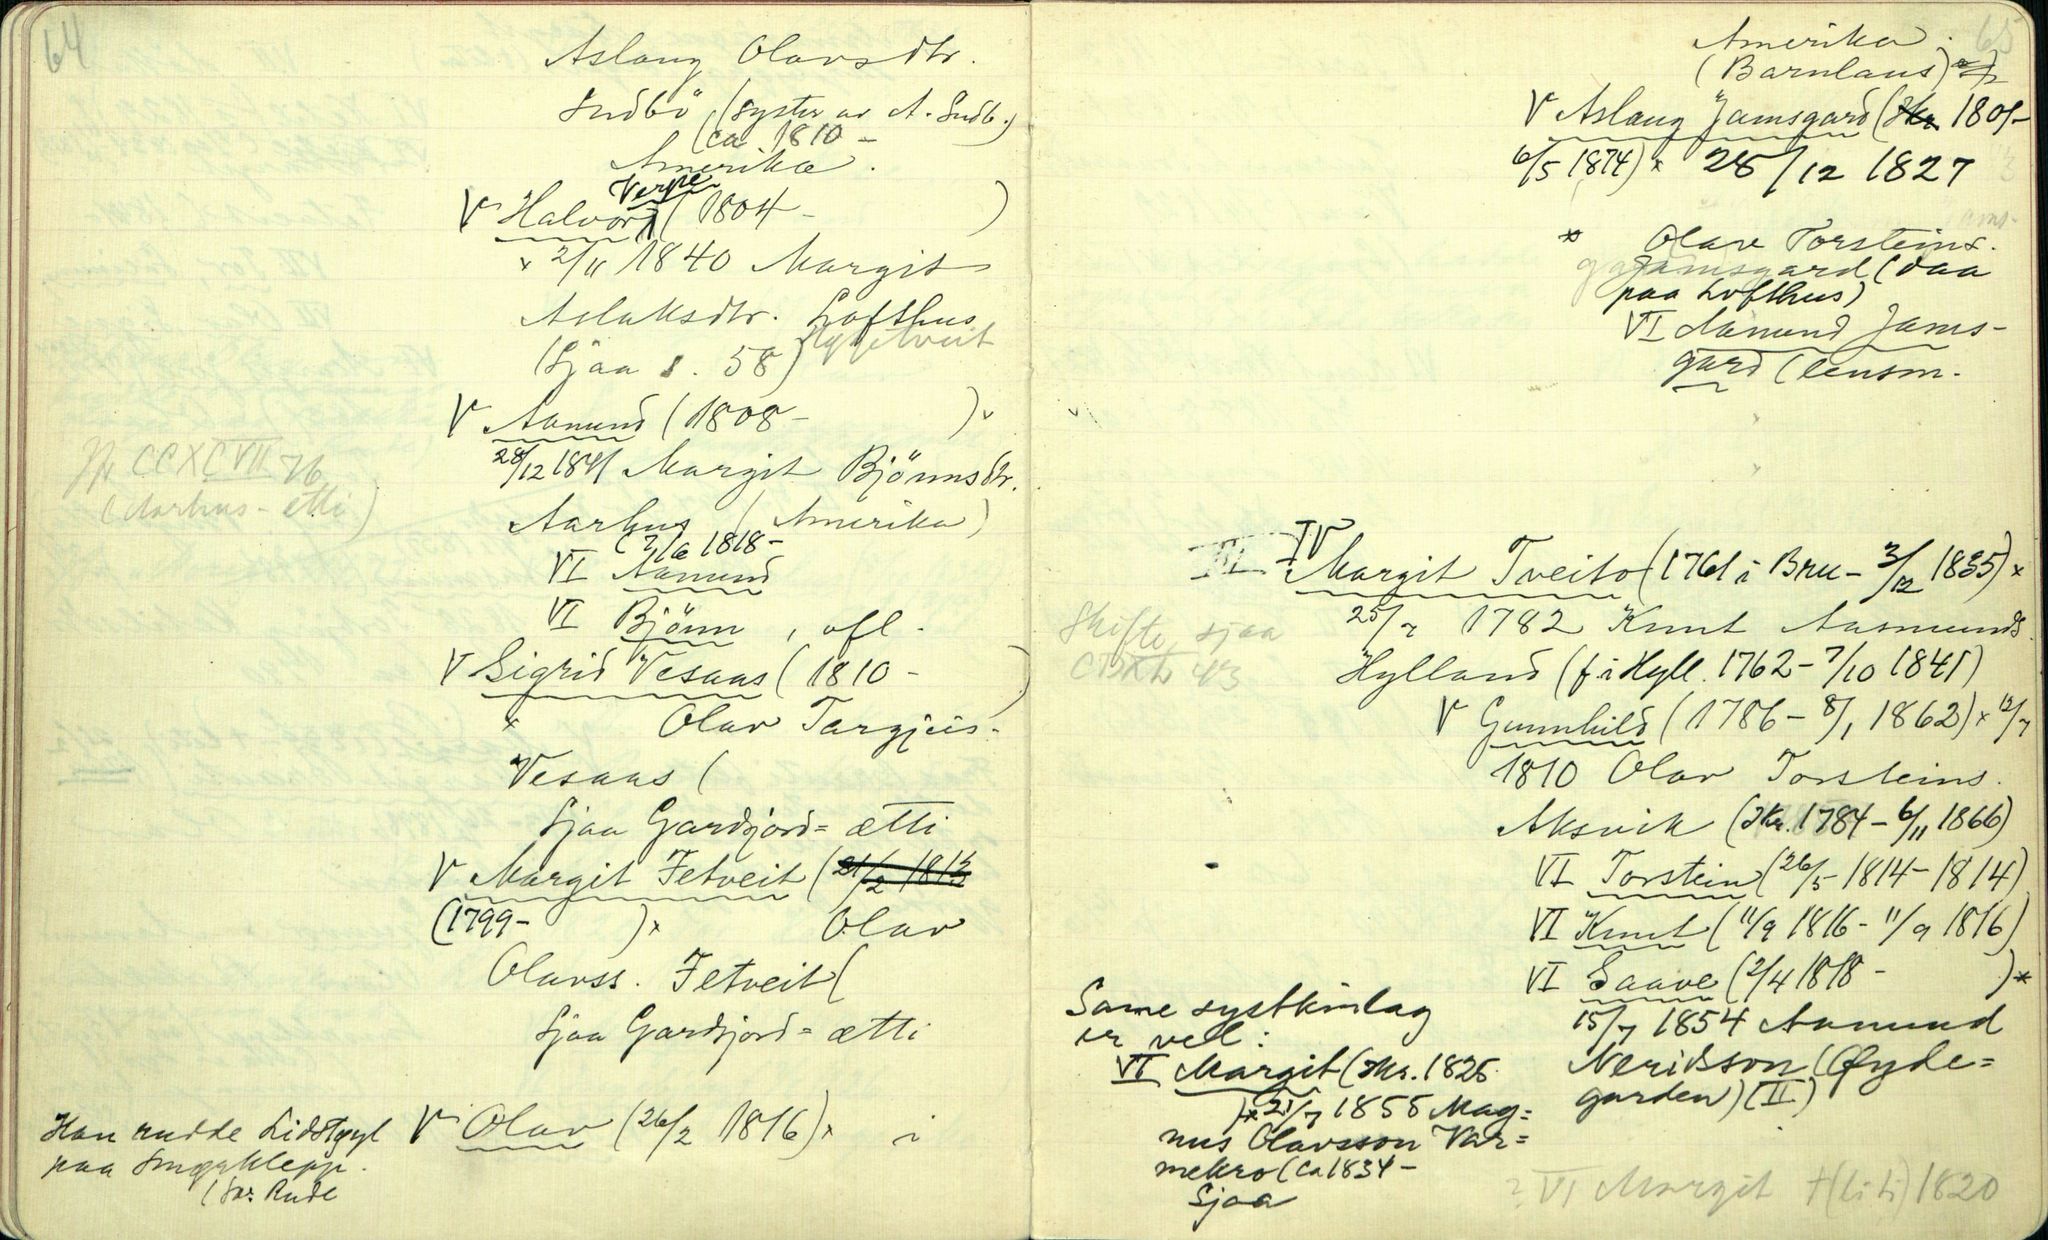 64
Aslaug Olavsdtr.
Sudbö (syster av A. Sudb.)
(ca 1810 –
Amerika.
Verpe
V Halvor (1804 – )
× 2/11 1840 Margit
Aslaksdtr. Lofthus
(Sjaa s. 58)
V Aamund (1808 – ) ×
28/12 1841 Margit Björnsdtr.
Aarhus (Amerika)
1818 –
VI Aamund
VI Björn, ofl.
CCXCVII 76
(Aarhus-ætti)
V Sigrid Vesaas (1810 – )
× Olav Targjeis-
Vesaas (
Sjaa Gardsjord= ætti
V Margit Jetveit (21/2 1813
(1799 – ) × Olav
Olavss. Jetveit (
Sjaa Gardsjord= ætti
V Olav (26/2 1816) × i
Han rudde Lidstøyl
paa Smørklepp.
Rude
65
Amerika.
(Barnlaus)
V Aslaug Jamsgard (Skr 1801–
6/5 1874) × 28/12 1827
* Olav Torsteins.
Jamsgard (daa
paa Lofthus)
VI Aamund Jams-
gard (lensm.
III IV
Margit Tveito (1761 i Bru – 3/12 1835) ×
25/7 1782 Knut Aasmunds.
Hylland (f. i Hyll. 1762 – 7/10 1841)
Skifte sjaa
43
V Gunnhild (1786 – 8/1 1862) × 12/7
1810 Olav Torsteins.
Aksvik (Skr. 1784 – 6/11 1866)
VI Torstein (26/5 1814 – 1814)
VI Knut (11/9 1816 – 11/9 1816)
VI Saave (2/4 1818 – ) *
15/7 1854 Aamund
Neridsson (Øyde=
garden) (II)
Same systkinlag
er vel:
VI Margit (Skr. 1825
) × 21/7 1855 Mag=
nus Olavsson Var=
mekro (ca 1834 –
Sjaa
? VI Margit † (liti) 1820